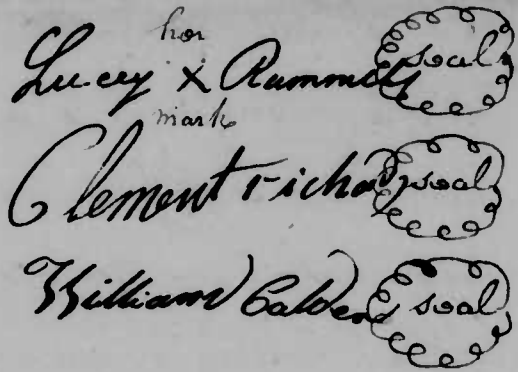 her
Lucey X Rammelly seal
mark
Clement richard seal
William Calder seal